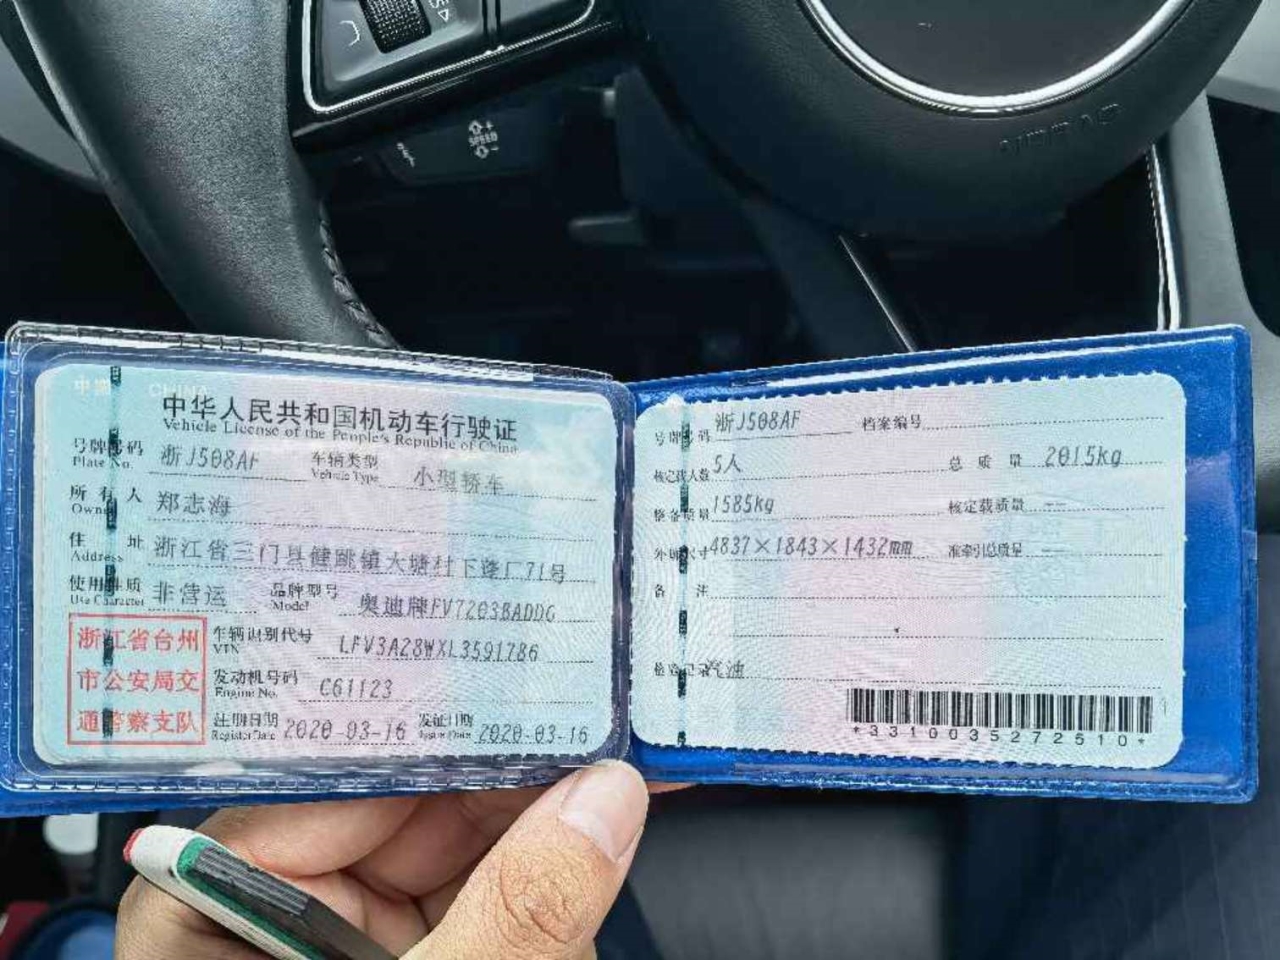 SPEED
AIRBAG
CHINA
中华人民共和国机动车行驶证
Vehicle License of the People's Republic of China
号牌号码 浙J508AF 车辆类型 小型轿车
Plate No. Vehicle Type
所有人 郑志海
Owner
住址 浙江省三门县健跳镇大塘村下湾厂71号
Address
使用性质 非营运 品牌型号 奥迪牌FV7203BADDG
Use Character Model
浙江省台州
市公安局交
通警察支队
车辆识别代号 LFV3A28WXL3591786
VIN
发动机号码 C61123
Engine No.
注册日期 2020-03-16 发证日期 2020-03-16
Register Date Issue Date
号牌号码 浙J508AF 档案编号
核定载人数 5人 总质量 2015kg
整备质量 1585kg 核定载质量 --
外廓尺寸 4837×1843×1432mm 准牵引总质量 --
备注
检验记录 汽油
*3310035272510*